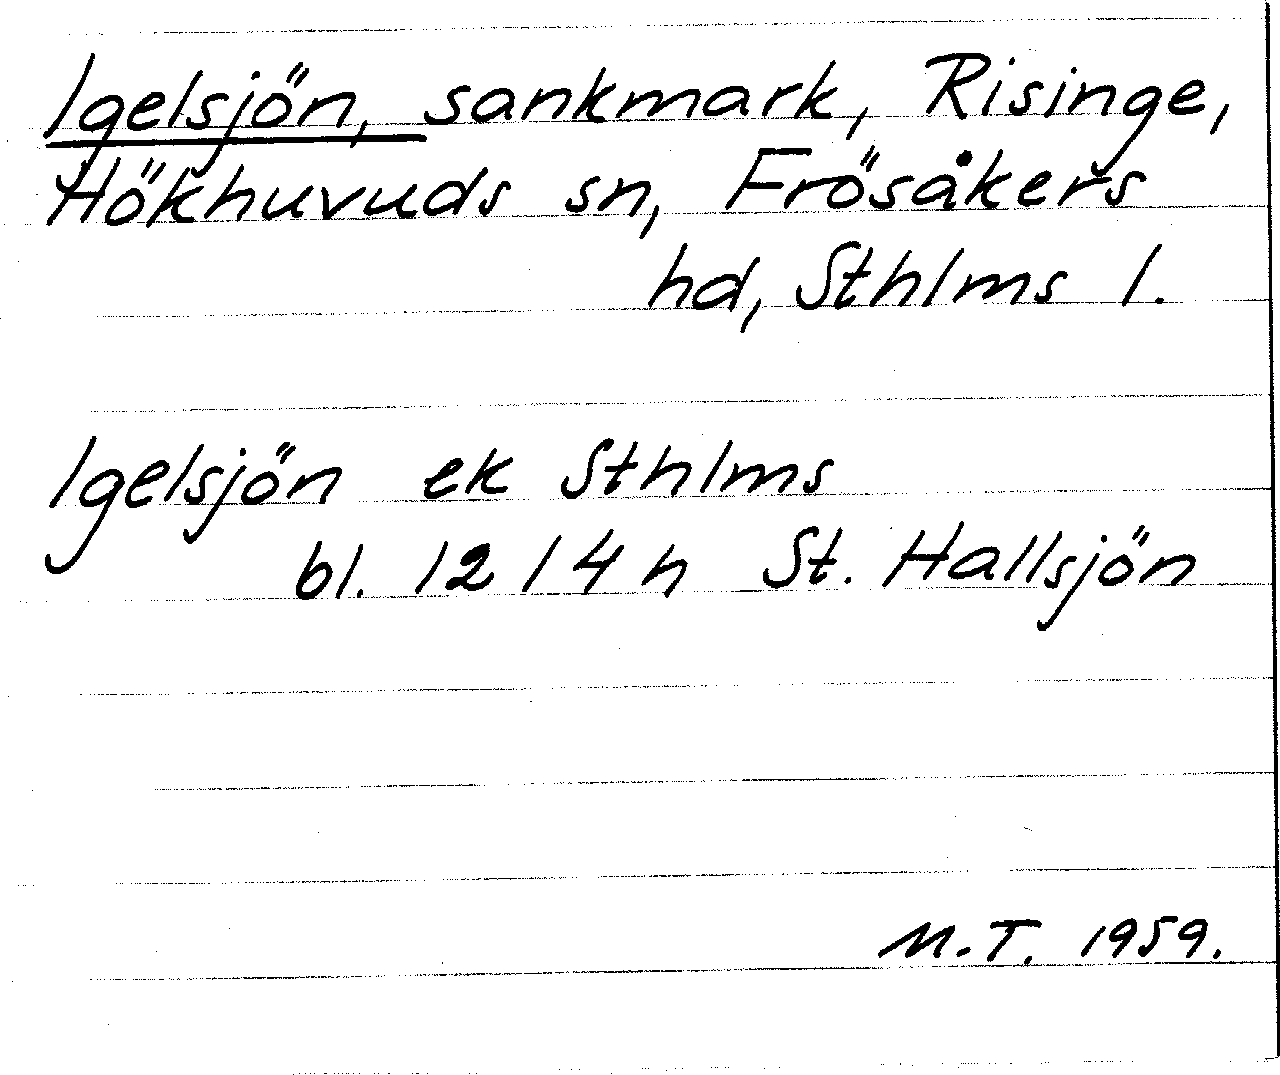 Igelsjön, sankmark, Risinge,
Hökhuvuds sn, Frösåkers
hd, Sthlms l.
Igelsjön ek Sthlms
bl. 12 14 h St. Hallsjön
M.T. 1959.